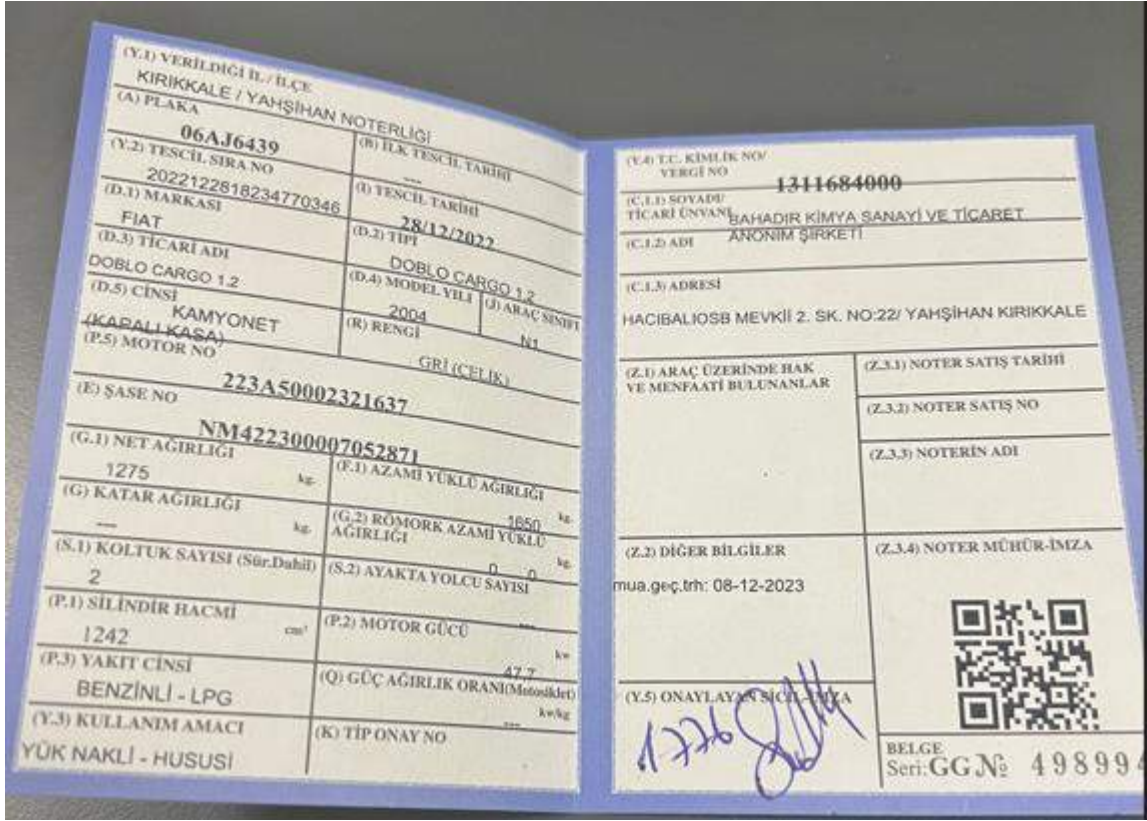 (Y.1) VERİLDİĞİ İL / İLÇE
KIRIKKALE / YAHŞİHAN NOTERLİĞİ
(A) PLAKA
06AJ6439
(B) İLK TESCİL TARİHİ
---
(Y.2) TESCİL SIRA NO
2022122818234770346
(I) TESCİL TARİHİ
28/12/2022
(D.1) MARKASI
FIAT
(D.2) TİPİ
DOBLO CARGO 1.2
(D.3) TİCARİ ADI
DOBLO CARGO 1.2
(D.4) MODEL YILI
2004
(J) ARAÇ SINIFI
N1
(D.5) CİNSİ
KAMYONET
(KAPALI KASA)
(R) RENGİ
GRİ (ÇELİK)
(P.5) MOTOR NO
223A50002321637
(E) ŞASE NO
NM422300007052871
(G.1) NET AĞIRLIĞI
1275 kg.
(F.1) AZAMİ YÜKLÜ AĞIRLIĞI
1650 kg.
(G) KATAR AĞIRLIĞI
--- kg.
(G.2) RÖMORK AZAMİ YÜKLÜ
AĞIRLIĞI
0 0 kg.
(S.1) KOLTUK SAYISI (Sür.Dahil)
2
(S.2) AYAKTA YOLCU SAYISI
---
(P.1) SİLİNDİR HACMİ
1242 cm³
(P.2) MOTOR GÜCÜ
47.7 kw
(P.3) YAKIT CİNSİ
BENZİNLİ - LPG
(Q) GÜÇ AĞIRLIK ORANI(Motosiklet)
--- kw/kg
(Y.3) KULLANIM AMACI
YÜK NAKLİ - HUSUSİ
(K) TİP ONAY NO
(Y.4) T.C. KİMLİK NO/
VERGİ NO
1311684000
(C.1.1) SOYADI/
TİCARİ ÜNVANI
BAHADIR KİMYA SANAYİ VE TİCARET
ANONİM ŞİRKETİ
(C.1.2) ADI
(C.1.3) ADRESİ
HACIBALIOSB MEVKİİ 2. SK. NO:22/ YAHŞİHAN KIRIKKALE
(Z.1) ARAÇ ÜZERİNDE HAK
VE MENFAATİ BULUNANLAR
(Z.3.1) NOTER SATIŞ TARİHİ
(Z.3.2) NOTER SATIŞ NO
(Z.3.3) NOTERİN ADI
(Z.2) DİĞER BİLGİLER
mua.geç.trh: 08-12-2023
(Z.3.4) NOTER MÜHÜR-İMZA
(Y.5) ONAYLAYAN SİCİL-İMZA
1776
BELGE
Seri: GG № 498994